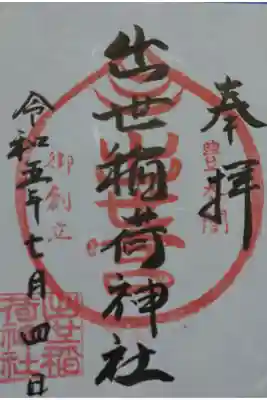 奉拝
豊太閤
出世稲荷神社
御創立
令和五年七月四日
出世稲荷神社